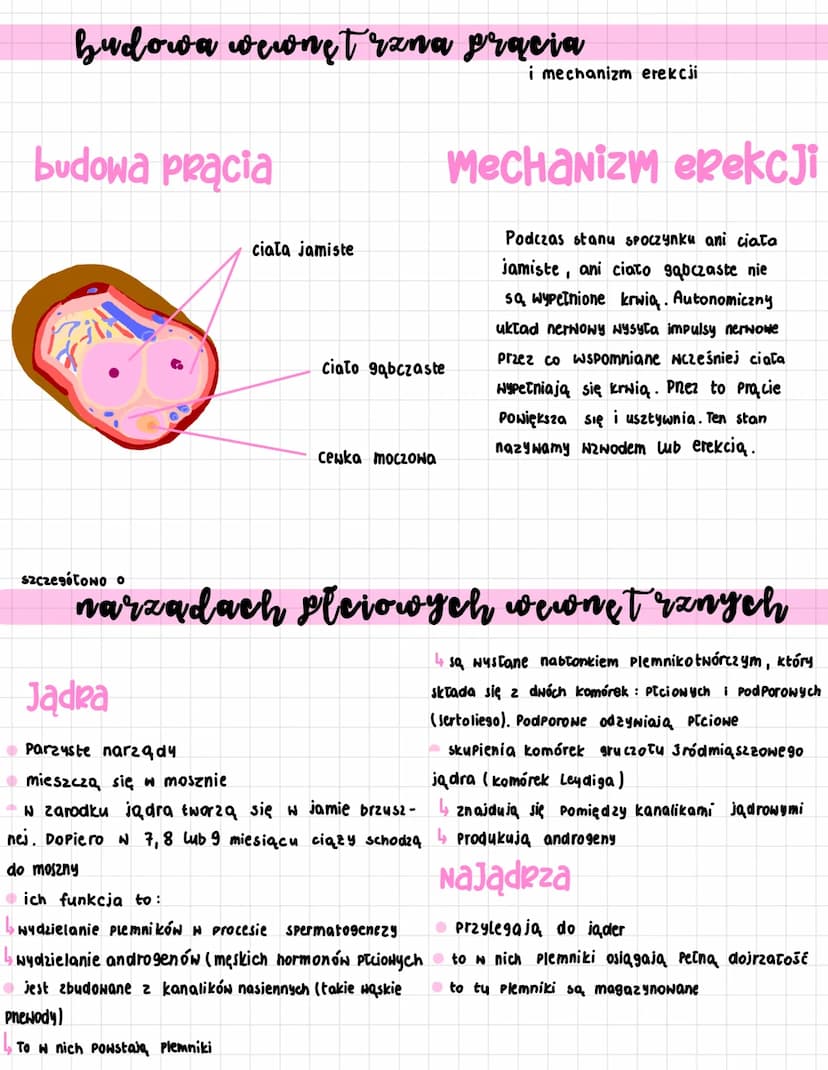 budowa wewnętrzna prącia
i mechanizm erekcji
budowa prącia
ciała jamiste
ciało gąbczaste
cewka moczowa
mechanizm erekcji
Podczas stanu spoczynku ani ciała
jamiste, ani ciało gąbczaste nie
są wypełnione krwią. Autonomiczny
układ nerwowy wysyła impulsy nerwowe
przez co wspomniane wcześniej ciała
wypełniają się krwią. Przez to prącie
powiększa się i usztywnia. Ten stan
nazywamy wzwodem lub erekcją.
szczegółowo o
narządach płciowych wewnętrznych
jądra
parzyste narządy
mieszczą się w mosznie
w zarodku jądra tworzą się w jamie brzusz-
nej. Dopiero w 7,8 lub 9 miesiącu ciąży schodzą
do moszny
ich funkcja to:
↳ wydzielanie plemników w procesie spermatogenezy
↳ wydzielanie androgenów (męskich hormonów płciowych
jest zbudowane z kanalików nasiennych (takie wąskie
przewody)
↳ To w nich powstają plemniki
↳ są wysłane nabłonkiem plemnikotwórczym, który
składa się z dwóch komórek: płciowych i podporowych
(Sertoliego). Podporowe odżywiają płciowe
skupienia komórek gruczołu śródmiąszowego
jądra (komórek Leydiga)
↳ znajdują się pomiędzy kanalikami jądrowymi
↳ produkują androgeny
najądrza
przylegają do jąder
to w nich plemniki osiągają pełną dojrzałość
to tu plemniki są magazynowane